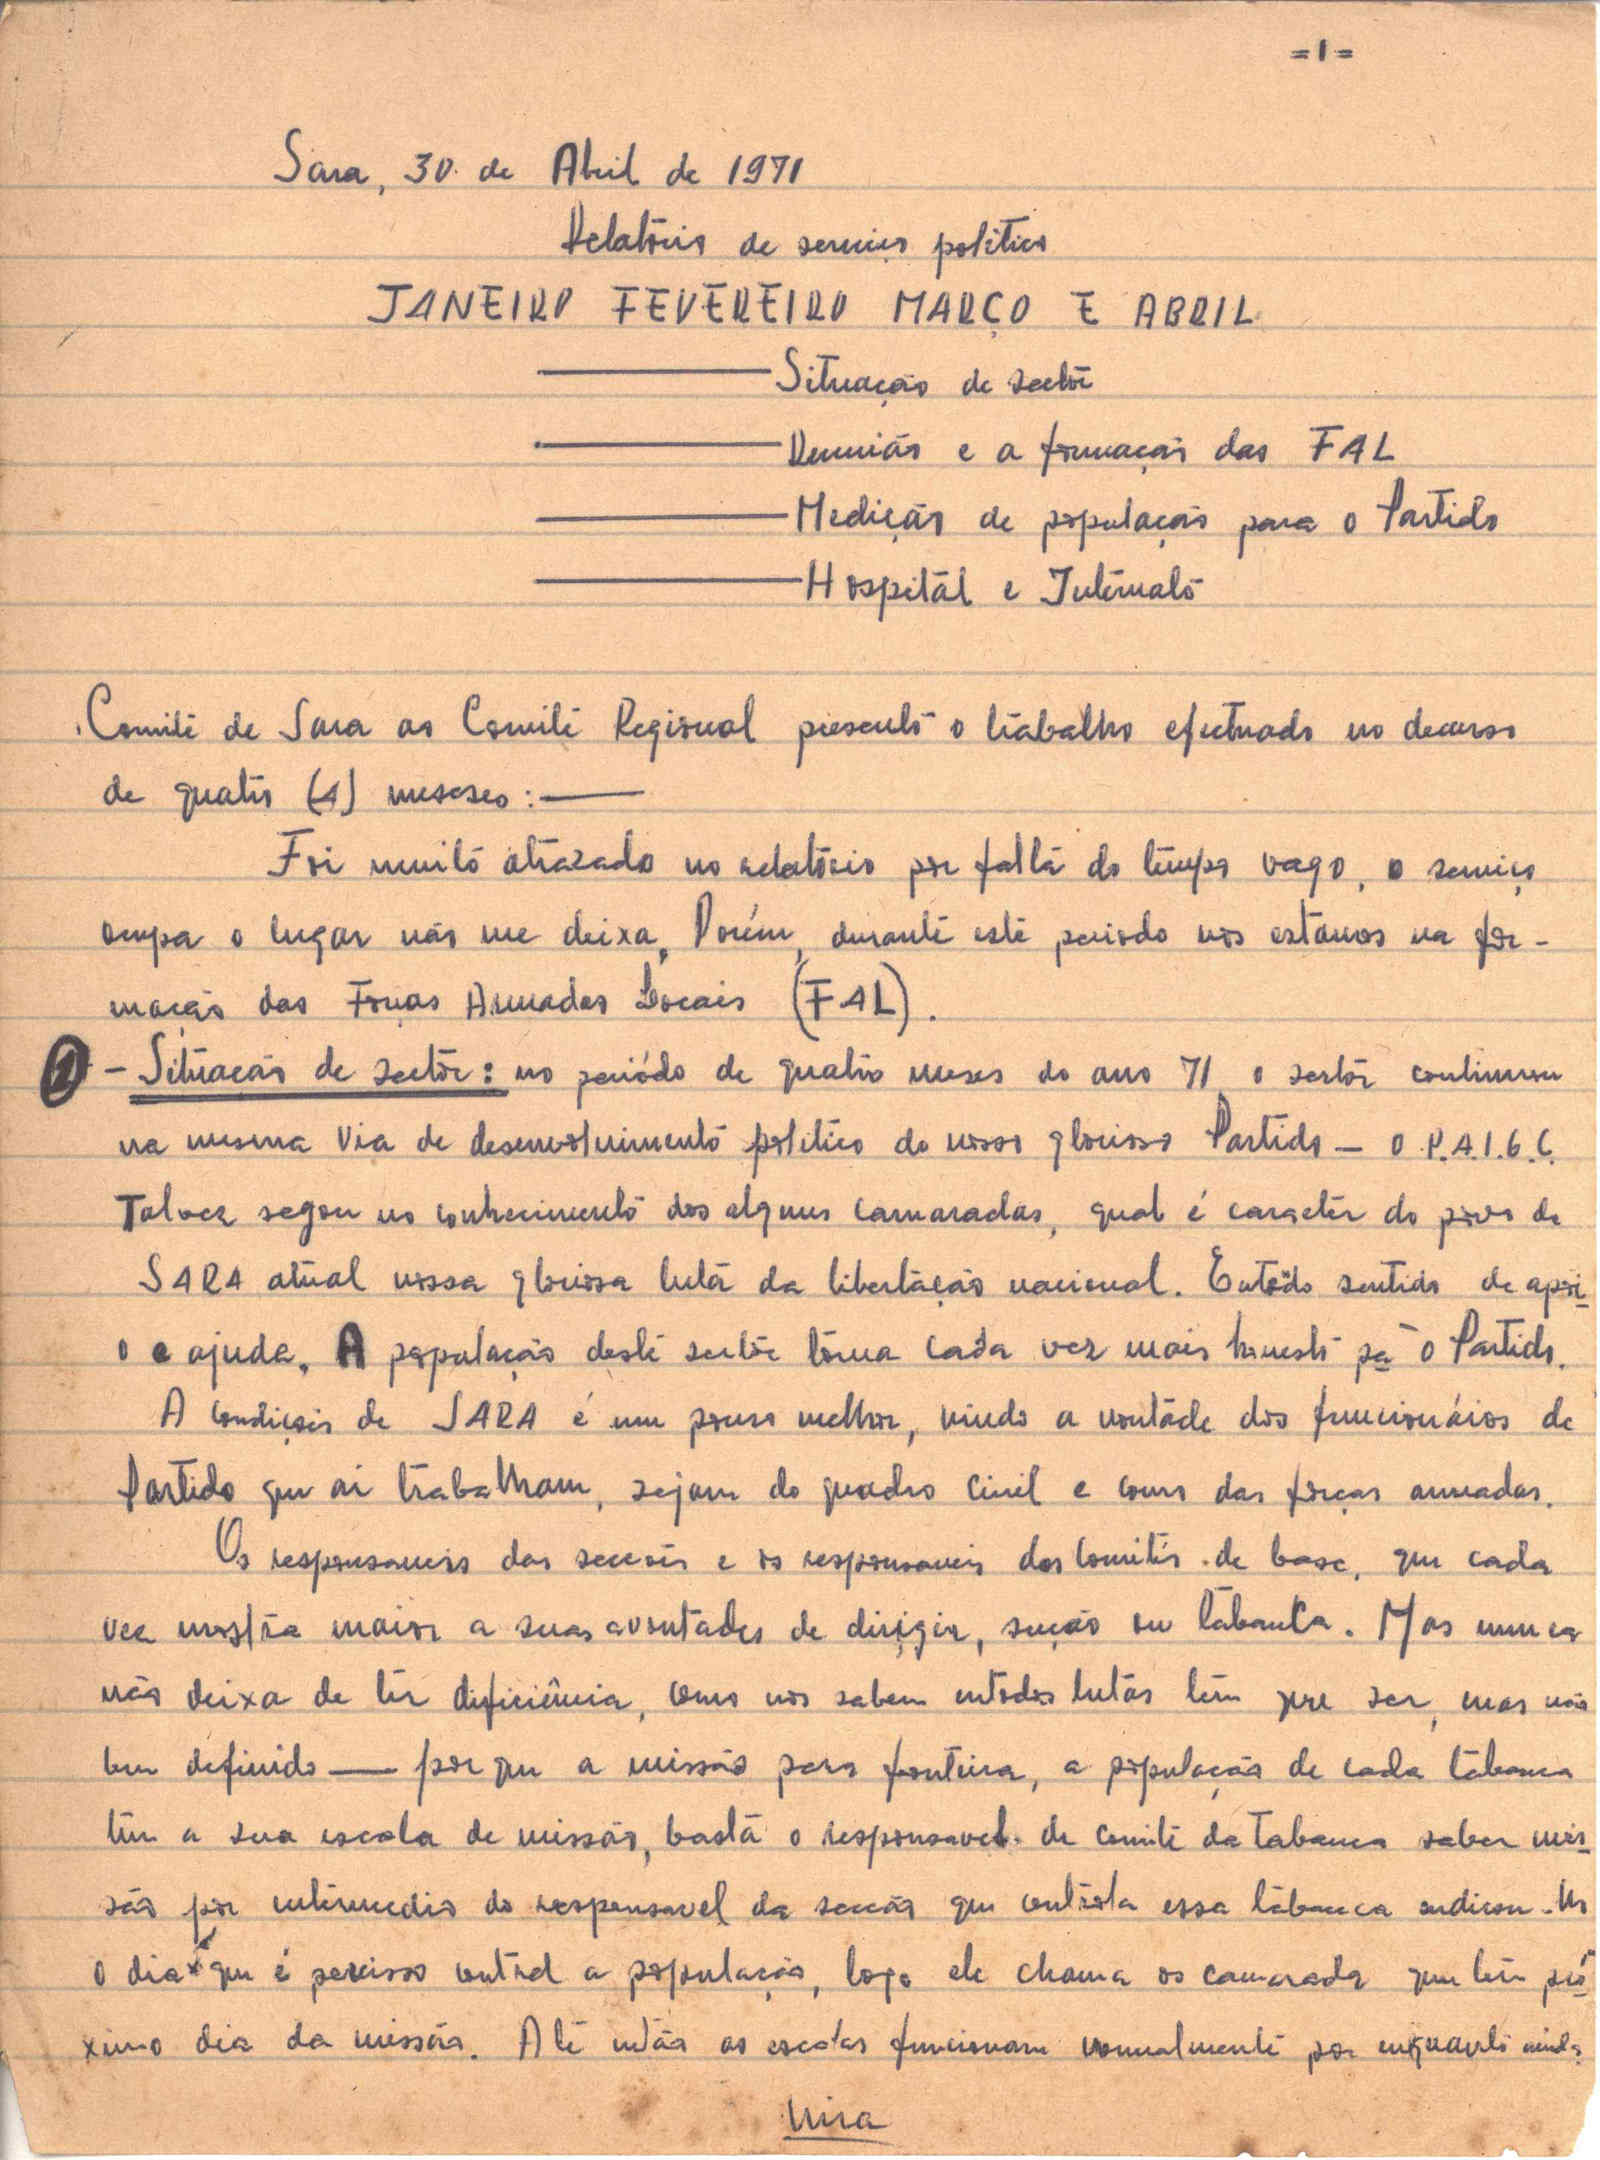 =1=
Sara, 30 de Abril de 1971
Relatório de serviço politico
JANEIRO FEVEREIRO MARÇO E ABRIL
Situação de sectôr
Reunião e a formação das FAL
Medição de população para o Partido
Hospitál e Intérnató
Comité de Sara ao Comité Regional presentó o trabalho efectuado no decurso
de quatro (4) meseses:
Foi muitó atrazado no relatório por faltá do tempo vago, o serviço
ocupa o lugar não me deixa. Porém, duranté esté periodo nos estámos na for-
mação das Forças Armadas Locais (FAL).
1 - Situação de sectôr: no periódo de quatro meses do ano 71 o sectôr continuou
na mesma via de desenvolvimentó politico do nosso glorioso Partido - O P.A.I.G.C.
Talvez segou no conhecimentó dos alguns camaradas, qual é caracter do povo de
SARA atual nossa gloriosa lutá da libertação nacional. Entôdo sentido de apoi-
o e ajuda. A população desté sectôr tôrna cada vez mais honestó pa o Partido.
A condiçois de SARA é um pouco melhor, vindo a vontáde dos funcionários de
Partido que ai trabalham, sejam do quadro Civil e como das forças armadas.
Os responsaveis das secçois e os responsaveis dos Comités de base, que cada
vez mostra maior a suas avontades de dirigir, secção ou tábanca. Mas nunca
não deixa de têr deficiência, como nos sabem entodos lutás têm que ser, mas não
bem definido — por que a missão para fronteira, a população de cada tábanca
têm a sua escala de missão, bastá o responsavel de comité da tabanca saber mis-
são por intérmedio do responsavel da secção que contróla essa tábanca indicou-lhe
o dia que é perciso contról a população, logo ele chama os camarada que têm pró-
ximo dia da missão. Até então as escalas funcionam normalmenté por enquantó ainda